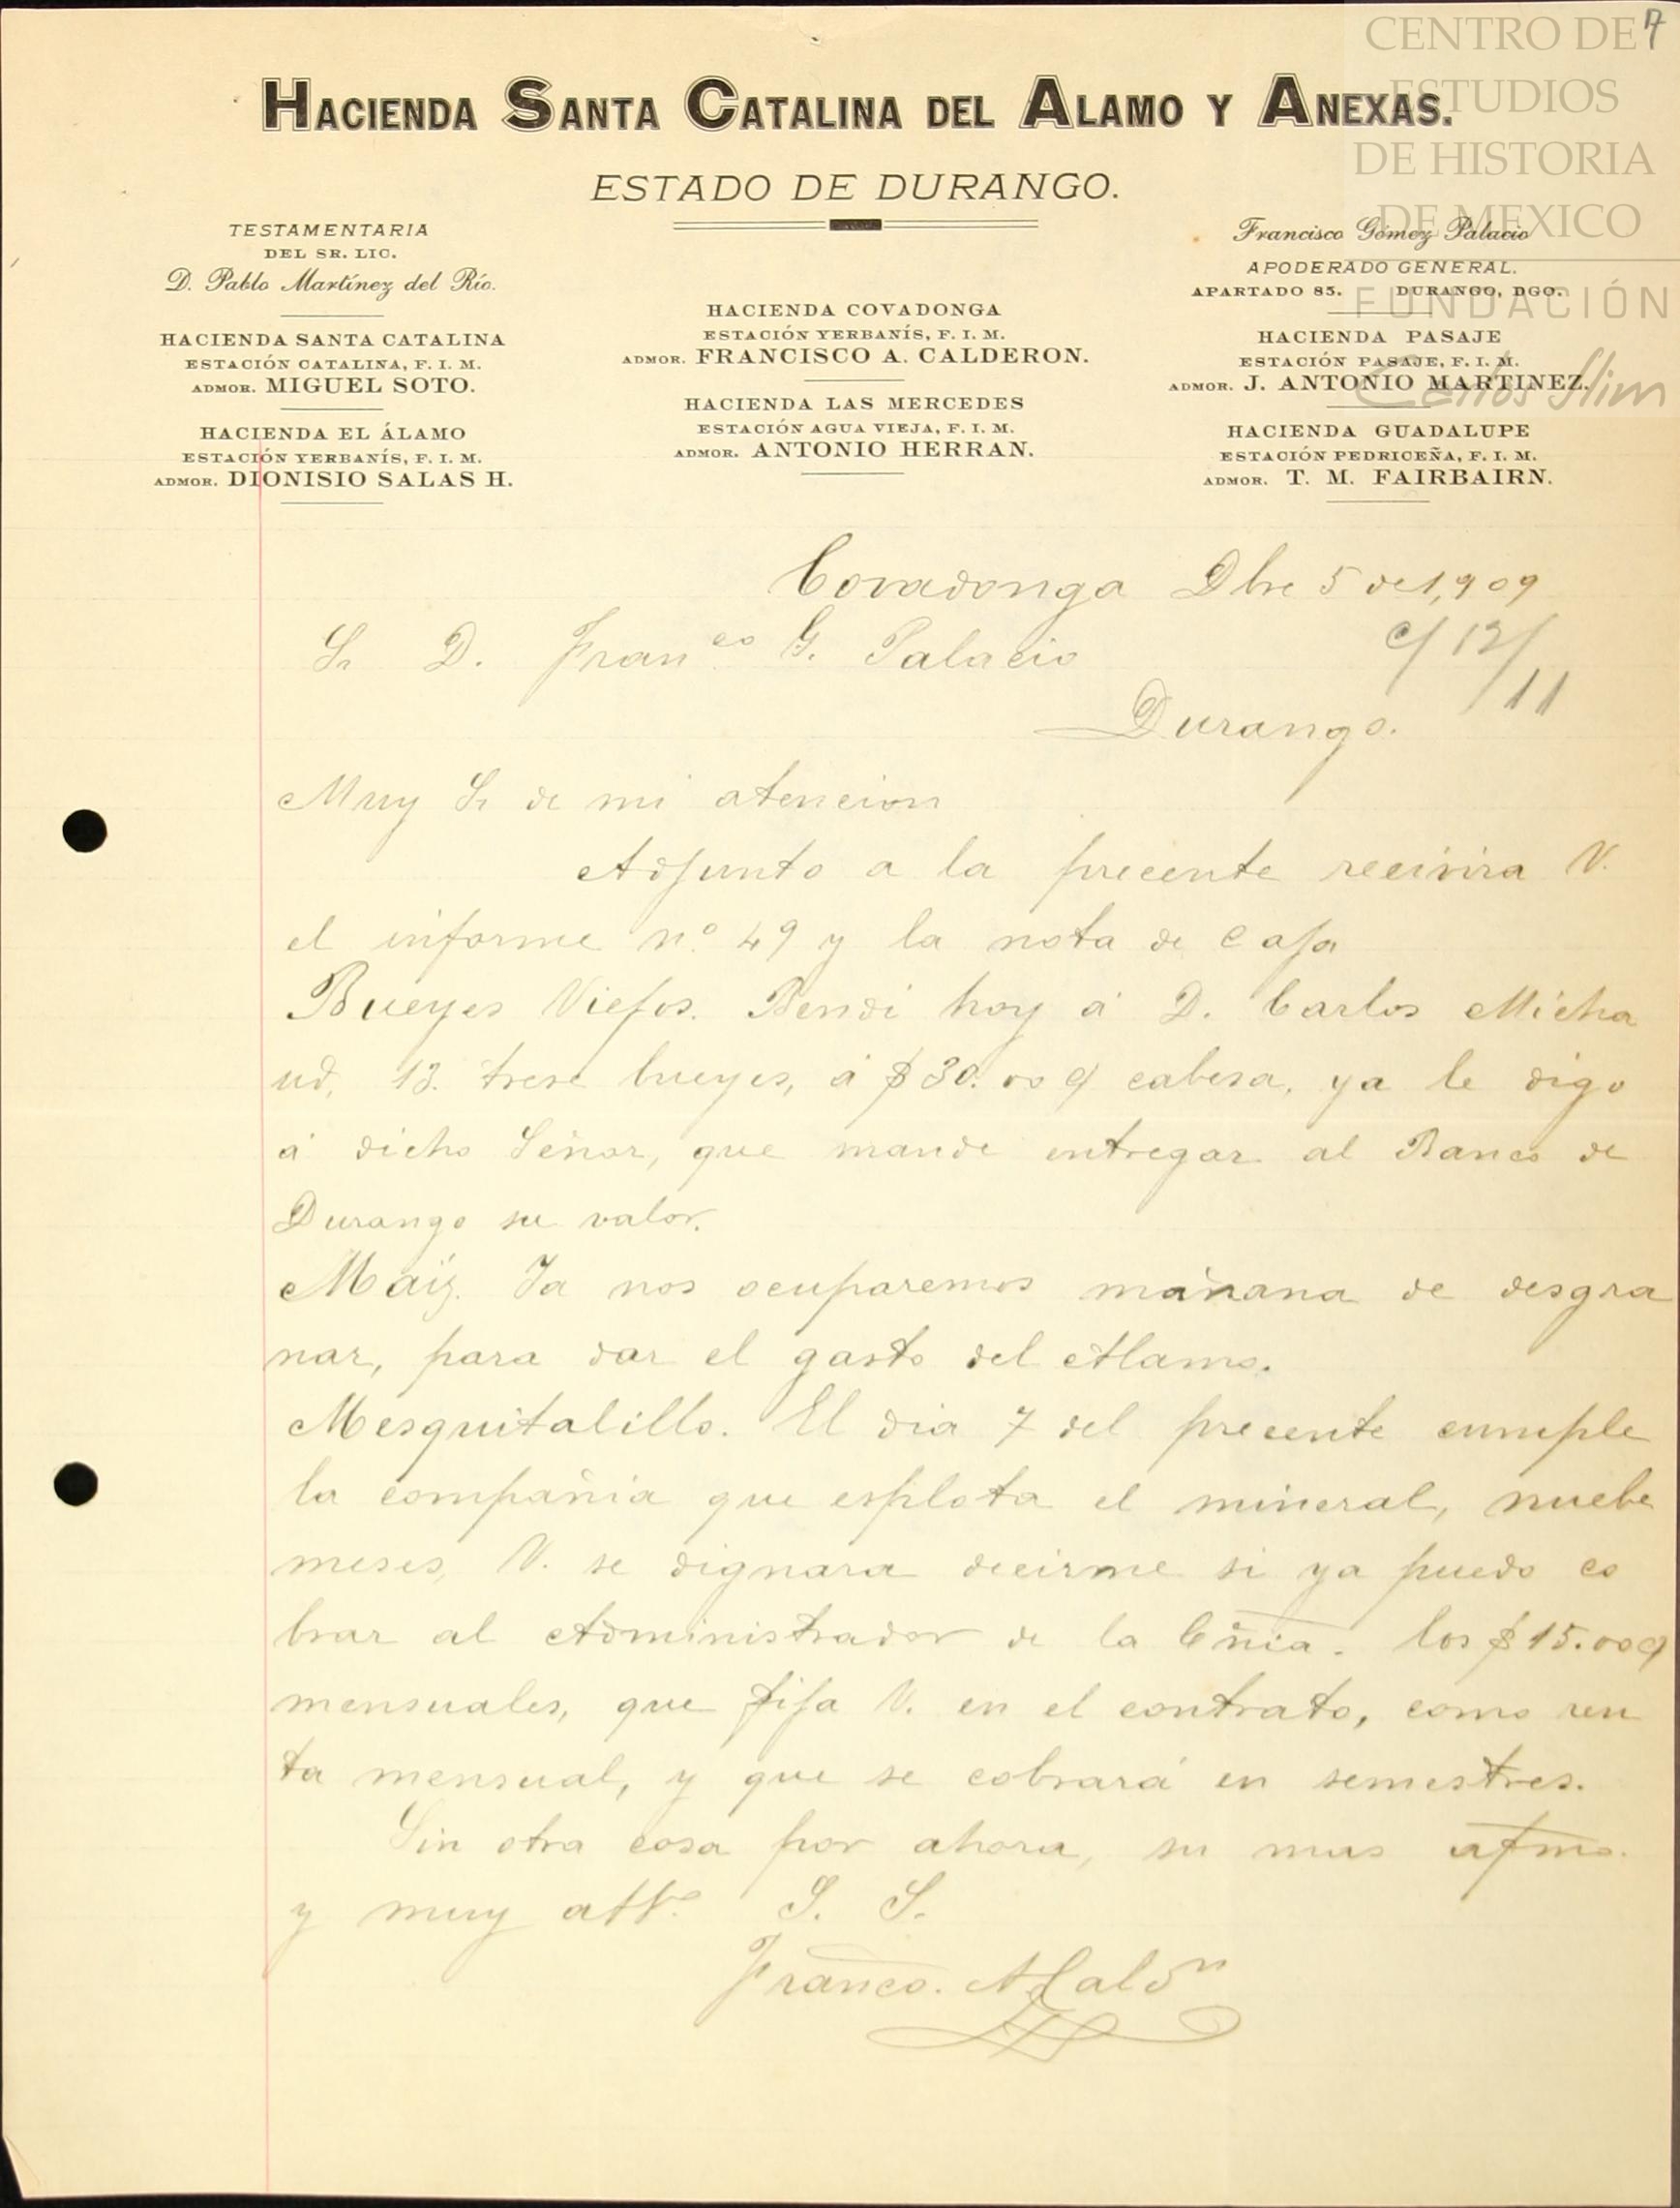 CENTRO DE
ESTUDIOS
DE HISTORIA
DE MEXICO
FUNDACIÓN
Carlos Slim
HACIENDA SANTA CATALINA DEL ALAMO Y ANEXAS.
ESTADO DE DURANGO.
TESTAMENTARIA
DEL SR. LIC.
D. Pablo Martínez del Río.
HACIENDA SANTA CATALINA
ESTACIÓN CATALINA, F. I. M.
ADMOR. MIGUEL SOTO.
HACIENDA EL ÁLAMO
ESTACIÓN YERBANÍS, F. I. M.
ADMOR. DIONISIO SALAS H.
HACIENDA COVADONGA
ESTACIÓN YERBANÍS, F. I. M.
ADMOR. FRANCISCO A. CALDERON.
HACIENDA LAS MERCEDES
ESTACIÓN AGUA VIEJA, F. I. M.
ADMOR. ANTONIO HERRAN.
Francisco Gómez Palacio
APODERADO GENERAL.
APARTADO 85. DURANGO, DGO.
HACIENDA PASAJE
ESTACIÓN PASAJE, F. I. M.
ADMOR. J. ANTONIO MARTINEZ.
HACIENDA GUADALUPE
ESTACIÓN PEDRICEÑA, F. I. M.
ADMOR. T. M. FAIRBAIRN.
Covadonga Dbre 5 de 1,909
Sr D. Franco G. Palacio
c/ 12/
11
Durango.
Muy Sr de mi atencion
Adjunto a la precente recivira V.
el informe nº 49 y la nota de Caja
Bueyes Viejos. Bendi hoy á D. Carlos Micha
ud, 13. trese bueyes, á $30.00 c/ cabesa, ya le digo
á dicho Señor, que mande entregar al Banco de
Durango su valor.
Maiz. Ya nos ocuparemos mañana de desgra
nar, para dar el gasto del Alamo.
Mesquitalillo. El dia 7 del precente cumple
la compañia que esplota el mineral, nuebe
meses, V. se dignara decirme si ya puedo co
brar al Administrador de la Cñia. los $15.00 c/
mensuales, que fija V. en el contrato, como ren
ta mensual, y que se cobrará en semestres.
Sin otra cosa por ahora, su mas afmo.
y muy atto S. S.
Franco. A Caldn